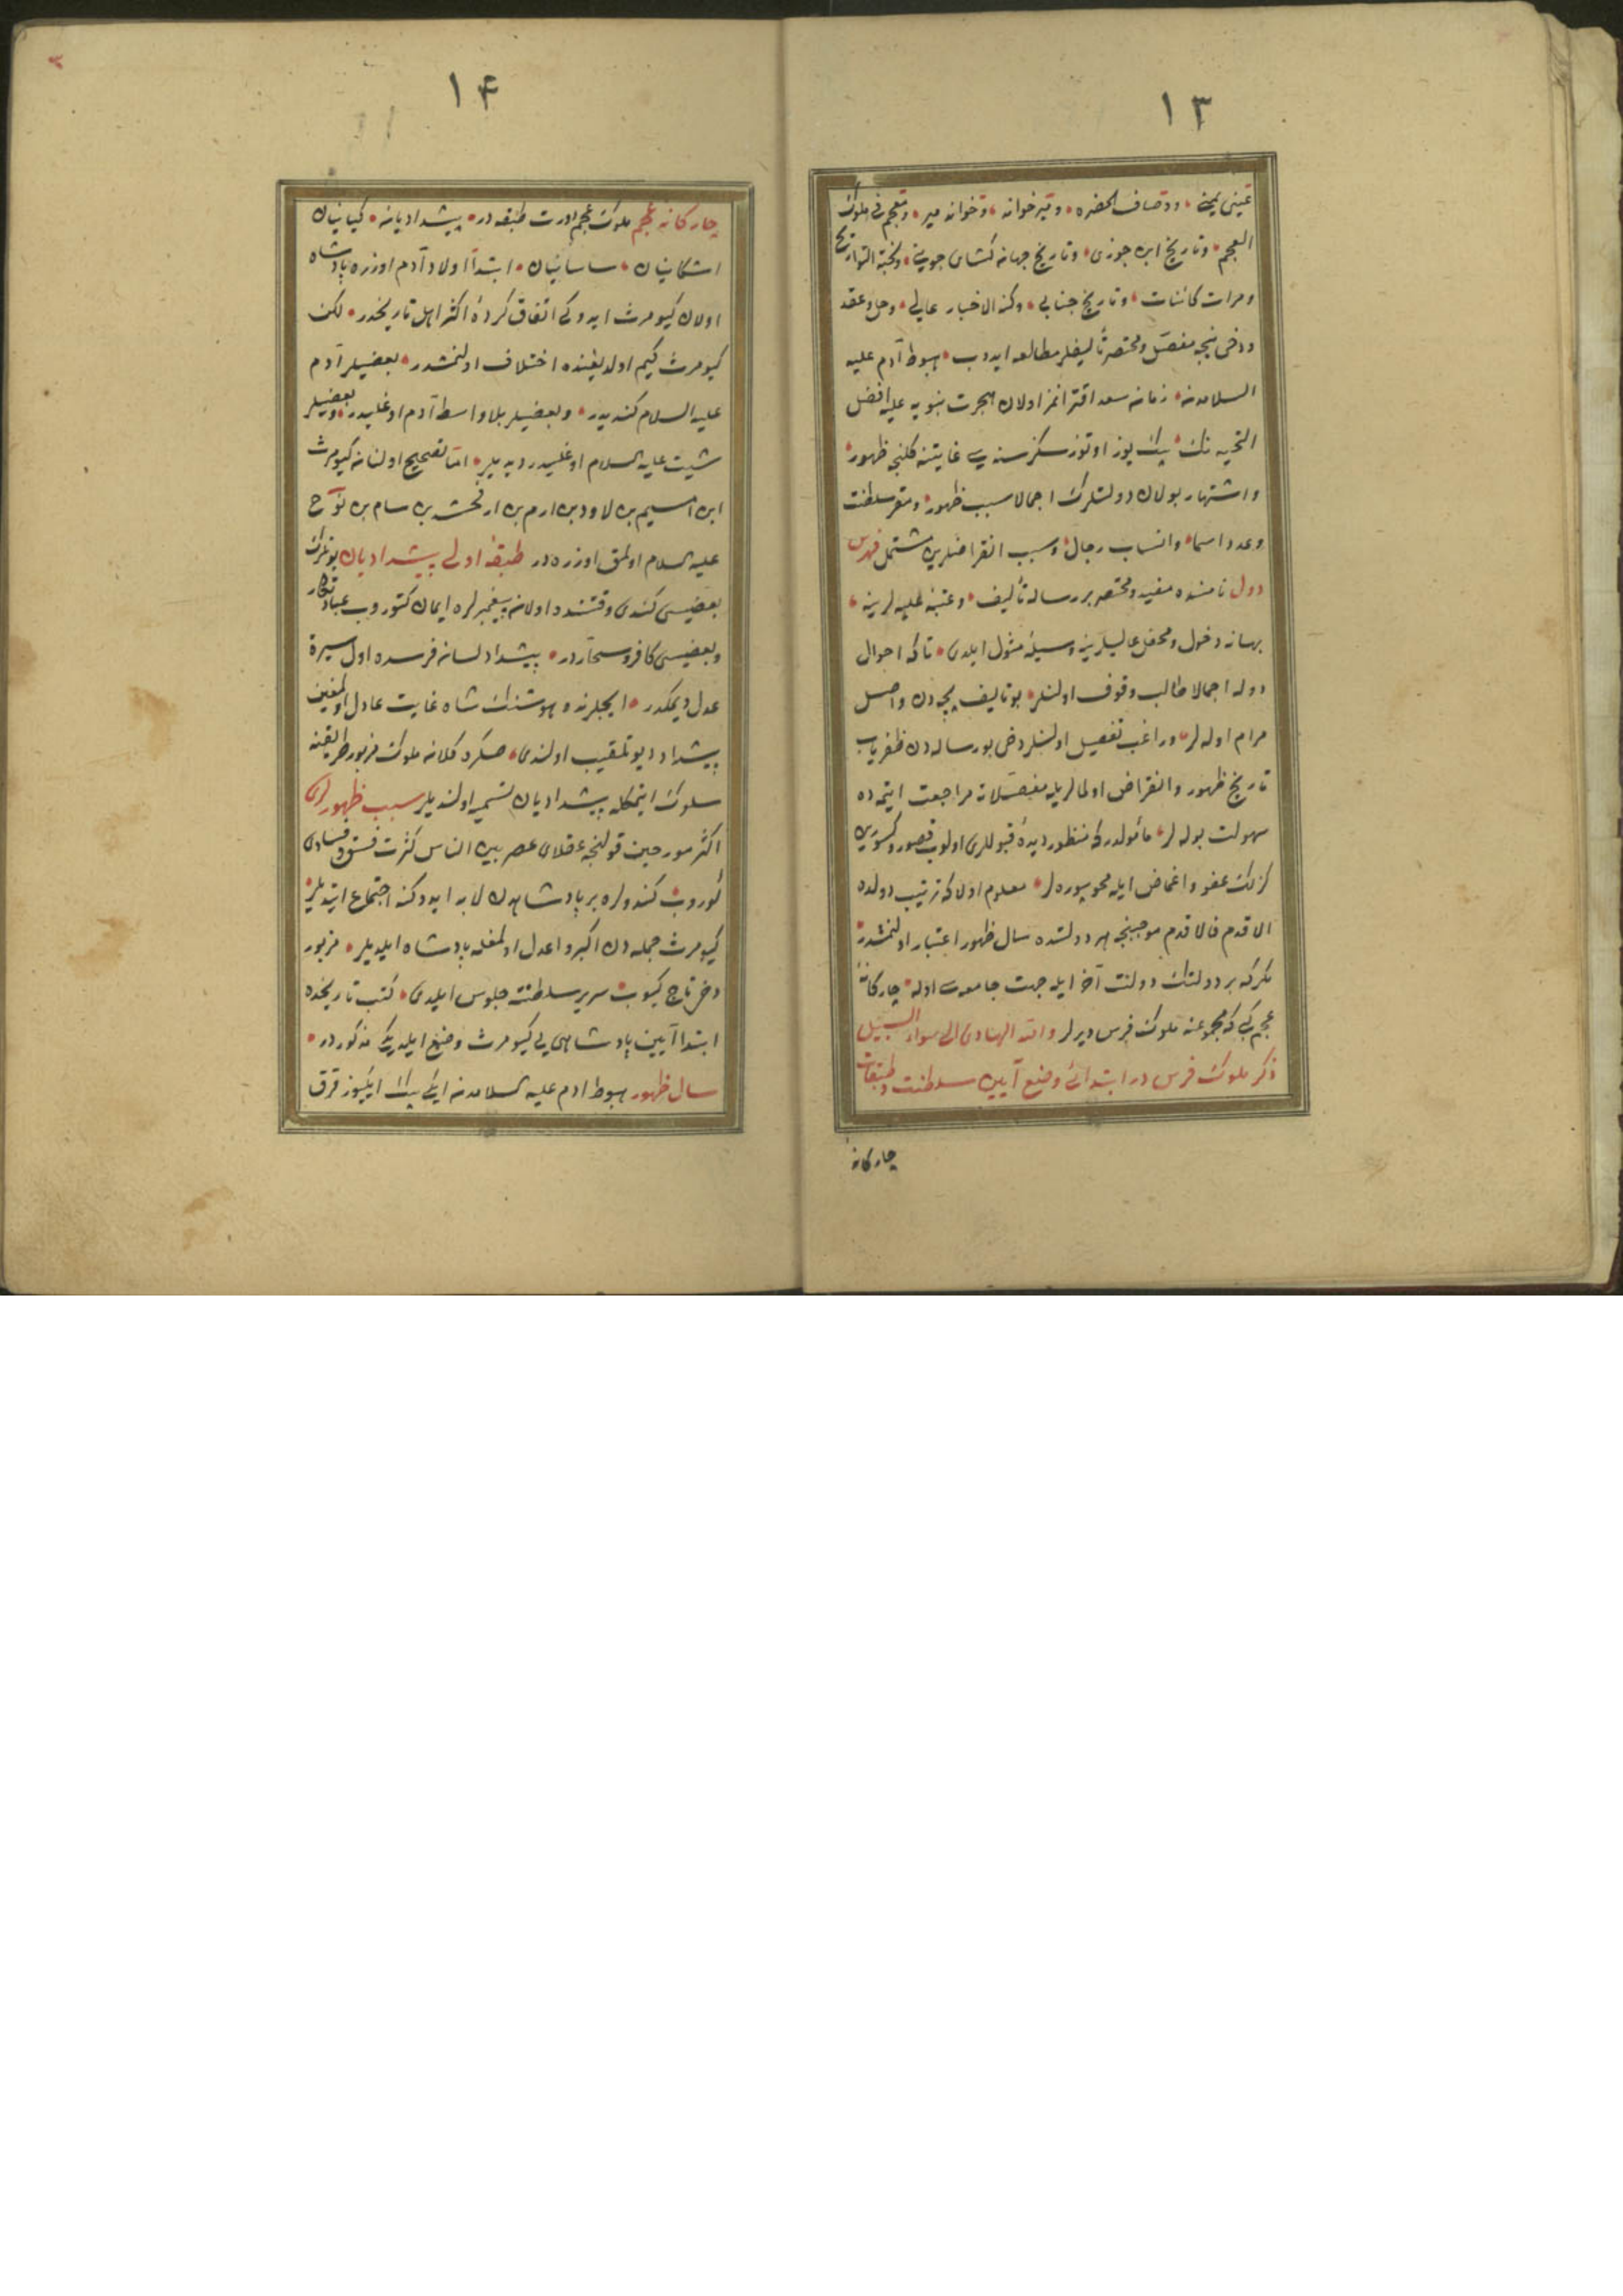 ١٣
عتبی یمینی و وصاف الحضره و میر خواند و خواند میر و معجم فی ملوک
العجم و تاریخ ابن جوزی و تاریخ جهان کشای جوینی و نخبة التواریخ
و مرات کائنات و تاریخ جنابی و کنه الاخبار عالی و حل و عقد
و دخی نیجه مفصل و مختصر تألیفلر مطالعه ایدوب هبوط آدم علیه
السلامدن زمان سعد اقترانمز اولان هجرت نبویه علیه افضل
التحیه نک بیک یوز اوتوز سکز سنه سی غایتنه کلنجه ظهور
و اشتهار بولان دولتلرک اجمالا سبب ظهور و مقر سلطنت
و عدد اسما و انساب رجال و سبب انقراضلرین مشتمل فهرس
دول نامنده مفید و مختصر بر رساله تألیف و عتبهٔ علیه لرینه
بهانهٔ دخول و محفل عالیلرینه وسیلهٔ مثول ایلدی تا که احوال
دوله اجمالا طالب وقوف اولنلر بو تالیف پیچدن واصل
مرام اوله لر و راغب تفصیل اولنلر دخی بو رساله دن ظفریاب
تاریخ ظهور و انقراض اولمالریله مفصلاته مراجعت ایتمده
سهولت بوله لر مأمولدر که منظور دیدهٔ قبوللری اولوب قصور و کسورین
کزلک عفو و اغماض ایله محو بیوره لر معلوم اولا که ترتیب دولده
الاقدم فالاقدم موجبنجه هر دولتده سال ظهور اعتبار اولنمشدر
مکر که بر دولتک دولت آخر ایله جهت جامعه سی اوله چارکانهٔ
عجم کبی که مجموعنه ملوک فرس دیرلر والله الهادی الی سواء السبیل
ذکر ملوک فرس در ابتدائ وضع آیین سلطنت و طبقات
چارکانهٔ
١۴
چارکانهٔ عجم ملوک عجم دورت طبقه در پیشدادیان کیانیان
اشکانیان ساسانیان ابتدا اولاد آدم اوزره پادشاه
اولان کیومرث ایدوکی اتفاق کردهٔ اکثر اهل تاریخدر لکن
کیومرث کیم اولدیغنده اختلاف اولنمشدر بعضیلر آدم
علیه السلام کندیدر و بعضیلر بلا واسطه آدم اوغلیدر و بعضیلر
شیث علیه السلام اوغلیدر دیدیلر اما تصحیح اولنان کیومرث
ابن امسیم بن لاود بن ارم بن ارفحشد بن سام بن نوح
علیه السلام اولمق اوزره در طبقهٔ اولی پیشدادیان بونلرک
بعضیسی کندی وقتنده اولان پیغمبرلره ایمان کتوروب عبادتکار
و بعضیسی کافر و سحاردر پیشداد لسان فرسده اول سیرة
عدل دیمکدر ایچلرنده هوشنک شاه غایت عادل اولمغین
پیشداد دیو تلقیب اولندی صکره کلان ملوک مزبور طریقنه
سلوک ایتمکله پیشدادیان تسمیه اولندیلر سبب ظهورلری
اکثر مورخین قولنجه عقلای عصر بین الناس کثرت فسق و فسادی
کوروب کندولره بر پادشاهدن لابد ایدوکنه اجتماع ایتدیلر
کیومرث جمله دن اکبر و اعدل اولمغله پادشاه ایلدیلر مزبور
دخی تاج کیوب سریر سلطنته جلوس ایلدی کتب تاریخده
ابتدا آیین پادشاهی یی کیومرث وضع ایلدیکی مذکوردر
سال ظهور هبوط ادم علیه السلامدن ایکی بیک ایکیوز قرق